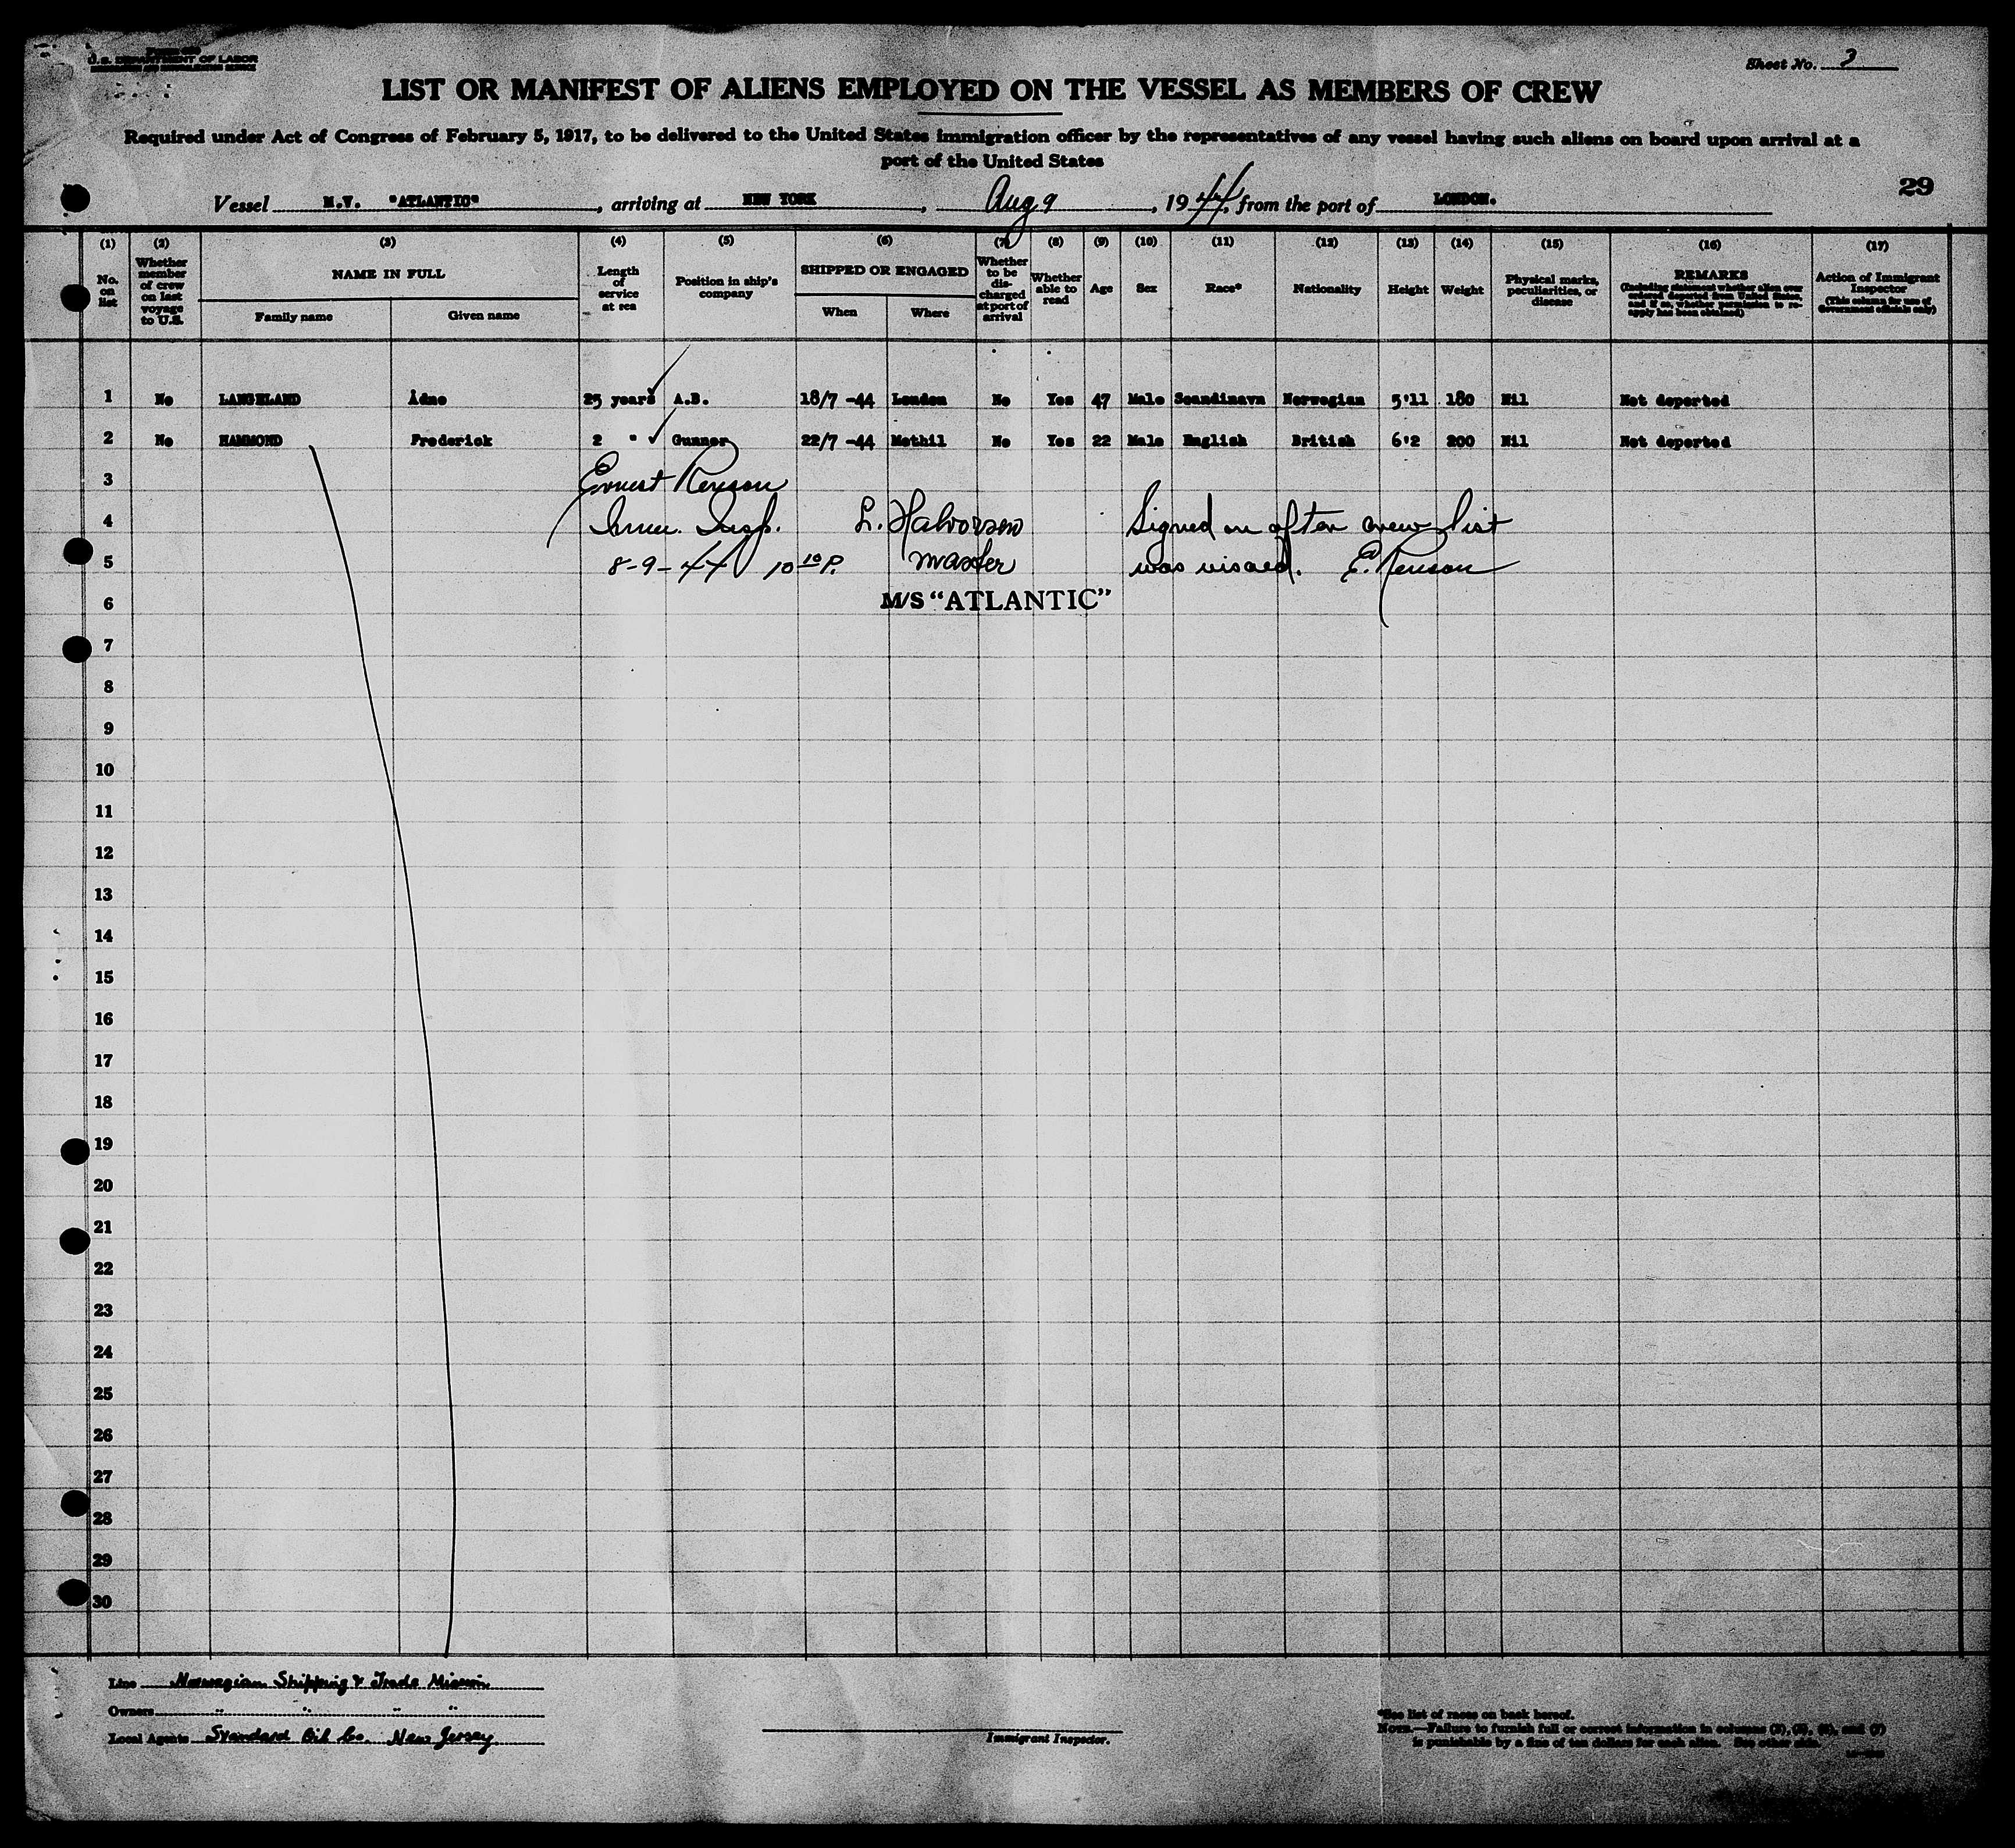 U.S. DEPARTMENT OF LABOR
Sheet No. 3
LIST OR MANIFEST OF ALIENS EMPLOYED ON THE VESSEL AS MEMBERS OF CREW
Required under Act of Congress of February 5, 1917, to be delivered to the United States immigration officer by the representatives of any vessel having such aliens on board upon arrival at a
port of the United States
29
Vessel M.V. "ATLANTIC", arriving at NEW YORK, Aug 9, 1944, from the port of LONDON.
(1) (2) (3) (4) (5) (6) (7) (8) (9) (10) (11) (12) (13) (14) (15) (16) (17)
No. on list
Whether member of crew on last voyage to U.S.
NAME IN FULL
Family name
Given name
Length of service at sea
Position in ship's company
SHIPPED OR ENGAGED
When
Where
Whether to be discharged at port of arrival
Whether able to read
Age
Sex
Race*
Nationality
Height
Weight
Physical marks, peculiarities, or disease
REMARKS
(Including statement whether alien ever ordered deported from United States, and if so, whether permission to reapply has been obtained)
Action of Immigrant Inspector
(This column for use of Government officials only)
1 No LANGELAND Ådne 25 years A.B. 18/7 -44 London No Yes 47 Male Scandinavn Norwegian 5'11 180 Nil Not deported
2 No HAMMOND Frederick 2 " Gunner 22/7 -44 Methil No Yes 22 Male English British 6'2 200 Nil Not deported
3 Ernest Renson
4 Imm. Insp. L. Halvorsen Signed on after crew list
5 8-9-44 10 10 P. Master was visaed. E. Renson
6 M/S "ATLANTIC"
7
8
9
10
11
12
13
14
15
16
17
18
19
20
21
22
23
24
25
26
27
28
29
30
Line Norwegian Shipping & Trade Mission
Owners " " " "
Local Agents Standard Oil Co. New Jersey
Immigrant Inspector.
*See list of races on back hereof.
NOTE.—Failure to furnish full or correct information in columns (3), (5), (6), and (7)
is punishable by a fine of ten dollars for each alien. See other side.